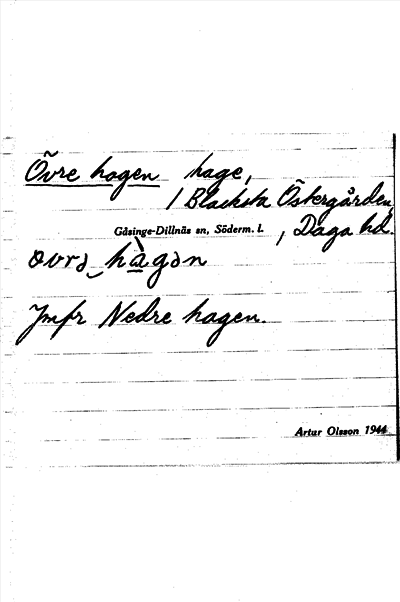 Övre hagen hage,
/ Blacksta Östergården
Gåsinge-Dillnäs sn, Söderm. l. , Daga hd.
Jmfr Nedre hagen.
Artur Olsson 1944